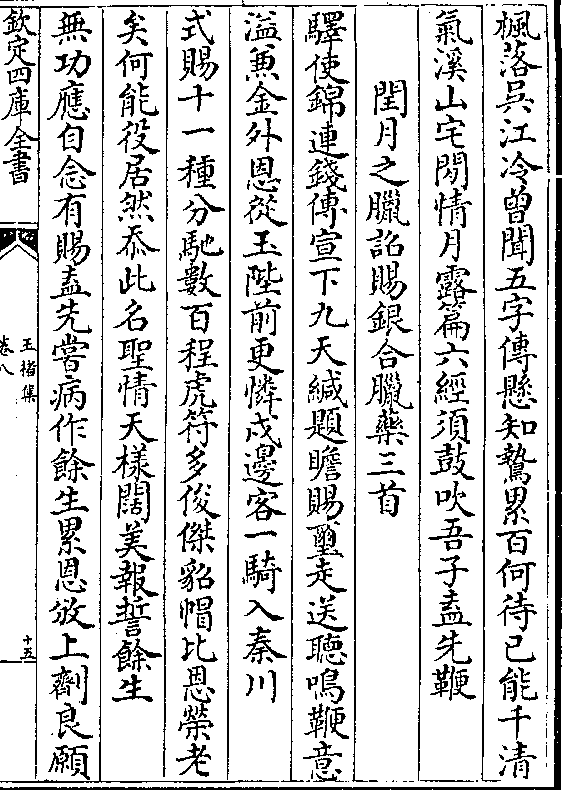 楓落吳江冷曾聞五字傳懸知鷙累百何待已能千清
氣溪山宅閒情月露篇六經須鼓吹吾子盍先鞭
閏月之臘詔賜銀合臘藥三首
驛使錦連錢傳宣下九天緘題瞻賜璽走送聽鳴鞭意
溢兼金外恩從玉陛前更憐戍邊客一騎入秦川
式賜十一種分馳數百程虎符多俊傑貂帽比恩榮老
矣何能役居然忝此名聖情天樣闊美報誓餘生
無功應自念有賜盍先嘗病作餘生累恩攽上劑良願
欽定四庫全書
玉楮集
卷八
十五